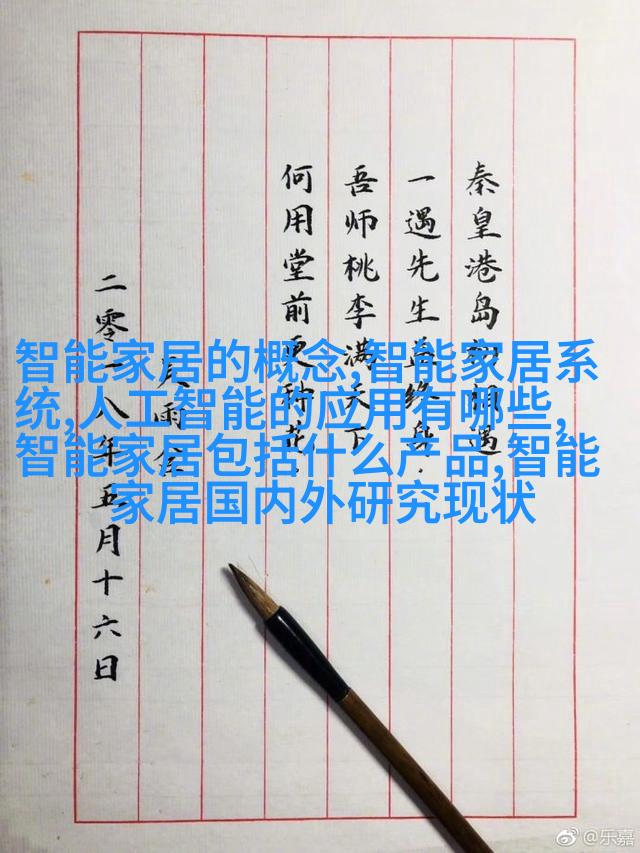 秦皇港岛遇
一遇先生益终身
吾师桃李满天下
何用堂前更种花
雨
二零一八年五月十六日
智能家居的概念,智能家居系
统,人工智能的应用有哪些,
智能家居包括什么产品,智能
家居国内外研究现状
@乐嘉